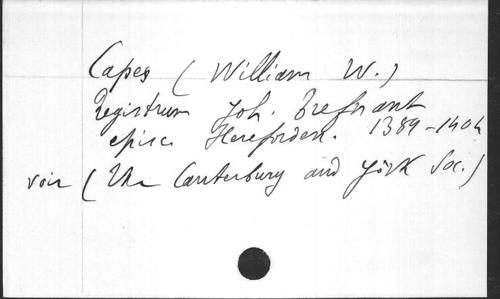 Capes (William W.)
Registrum Joh. Trefnant
episc. Hereforden. 1389-1404
voir (The Canterbury and York Soc.)